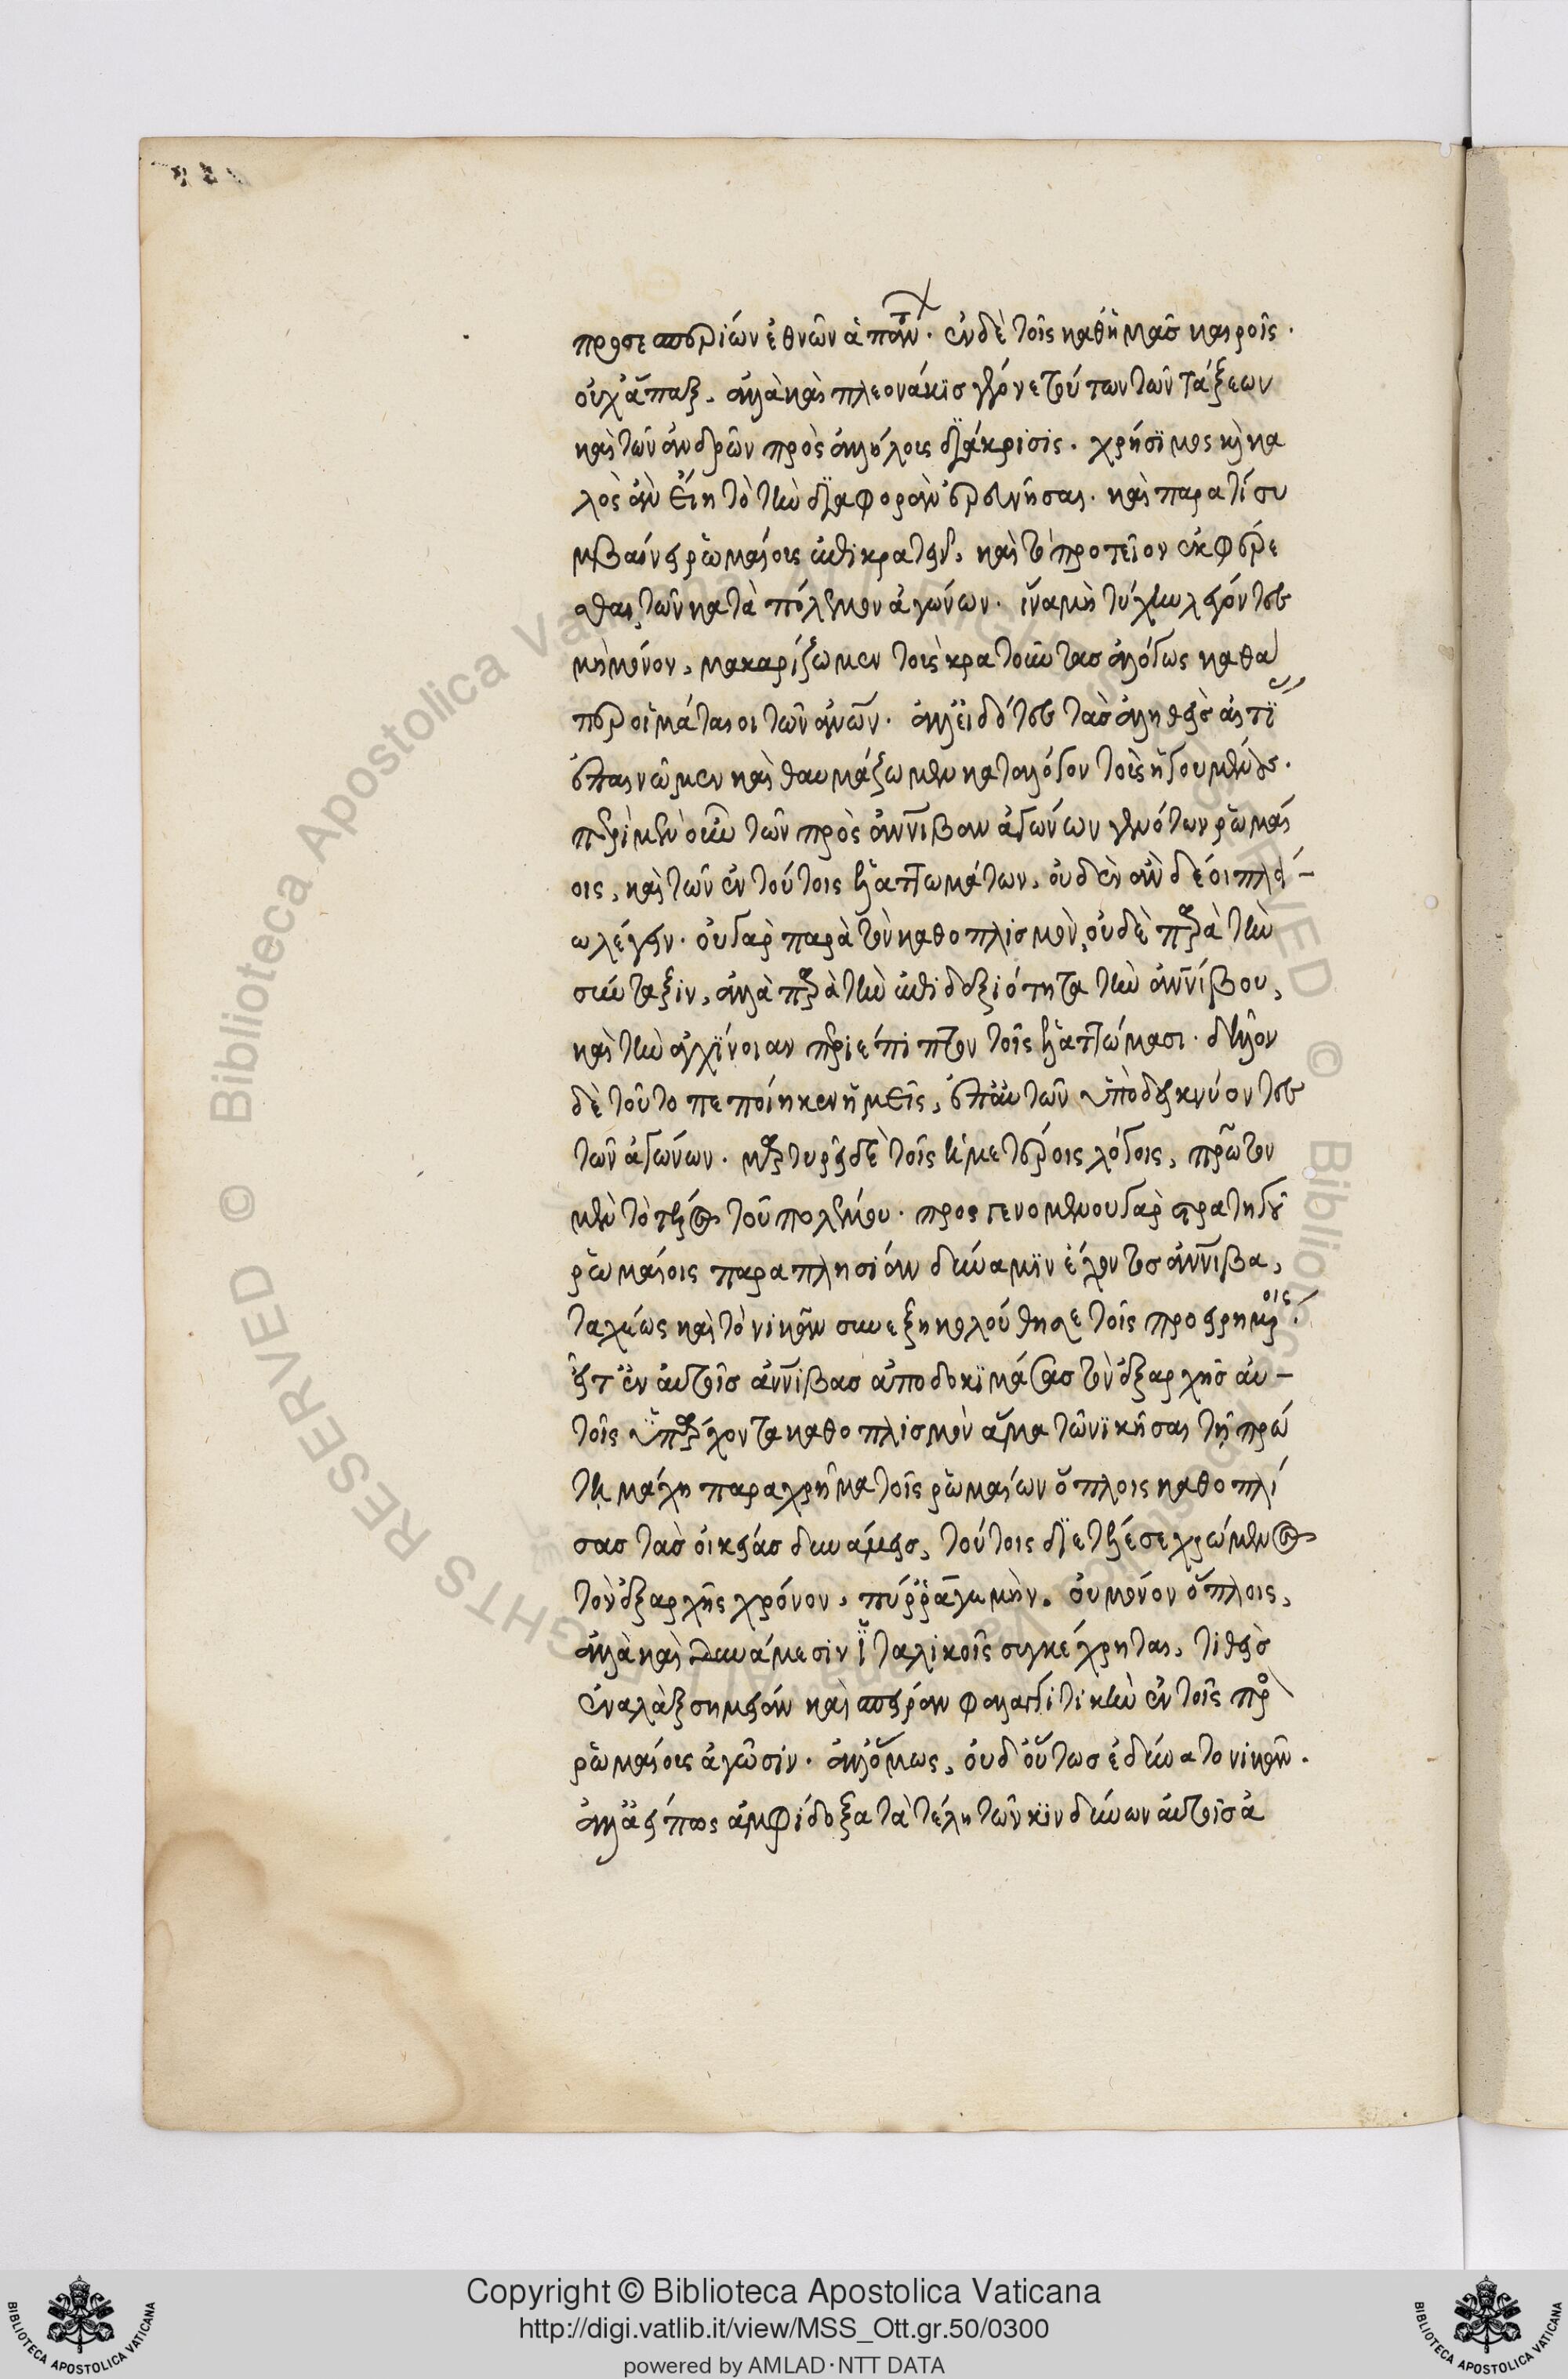 προσεσπερίων ἐθνῶν ἁπάντων. ἐν δὲ τοῖς καθ' ἡμᾶσ καιροῖς.
οὐχ ἅπαξ. ἀλλὰ καὶ πλεονάκισ γέγονε τούτων τῶν τάξεων
καὶ τῶν ἀνδρῶν πρὸς ἀλλήλους διάκρισις. χρήσιμος καὶ κα
λὸς ἂν εἴη τὸ τὴν διαφορὰν ἐρευνῆσαι. καὶ παρὰ τί συ
μβαίνει ῥωμαίους ἐπικρατεῖν. καὶ τὸ πρωτεῖον ἐκφέρε
σθαι τῶν κατὰ πόλεμον ἀγώνων. ἵνα μὴ τύχην λέγοντες
μὴ μόνον, μακαρίζωμεν τοὺς κρατοῦντασ ἀλόγως καθά
περ οἱ μάταιοι τῶν ἀνθρώπων. ἀλλ' εἰδότες τὰσ ἀληθεῖσ αἰτί
ἐπαινῶμεν καὶ θαυμάζωμεν κατὰ λόγον τοὺς ἡγουμένους.
περὶ μὲν οὖν τῶν πρὸς ἀννίβαν ἀγώνων γεγονότων ῥωμαί
οις, καὶ τῶν ἐν τούτοις ἐλαττωμάτων, οὐδὲν ἂν δέοι πλεί-
ω λέγειν. οὐ γὰρ παρὰ τὸν καθοπλισμὸν, οὐδὲ παρὰ τὴν
σύνταξιν, ἀλλὰ παρὰ τὴν ἐπιδεξιότητα τὴν ἀννίβου,
καὶ τὴν ἀγχίνοιαν περιέπιπτον τοῖς ἐλαττώμασι. δῆλον
δὲ τοῦτο πεποίηκεν ἡμεῖς, ἐπ' αὐτῶν ὑποδεικνύοντες
τῶν ἀγώνων. μαρτυρεῖ δὲ τοῖς ἡμετέροις λόγοις, πρῶτον
μὲν τὸ τέλος τοῦ πολέμου. προσγενομένου γὰρ στρατηγοῦ
ῥωμαίοις παραπλησίαν δύναμιν ἔχοντος ἀννίβα,
ταχέως καὶ τὸ νικᾶν συνεξηκολούθησε τοῖς προειρημένοις.
εἶτ' ἐν αὐτοῖσ ἀννίβασ ἀποδοκιμάσασ τὸν ἐξαρχῆς αὐ-
τοῖς ὑπάρχοντα καθοπλισμὸν ἅμα τῶ νικῆσαι τῇ πρώ
τῃ μάχῃ παραχρῆμα τοῖς ῥωμαίων ὅπλοις καθοπλί
σασ τὰσ οἰκείασ δυνάμεισ, τούτοις διετέλεσε χρώμενος
τὸν ἐξαρχῆς χρόνον, πύρρός γε μὴν. οὐ μόνον ὅπλοις,
ἀλλὰ καὶ δυνάμεσιν ἰταλικοῖς συγκέχρηται, τιθεὶσ
ἐναλλὰξ σημείαν καὶ σπεῖραν φαλαγγιτικὴν ἐν τοῖς πρὸς
ῥωμαίους ἀγῶσιν. ἀλλ' ὅμως, οὐδ' οὕτωσ ἐδύνατο νικᾶν.
ἀλλ' ἀεί πως ἀμφίδοξα τὰ τέλη τῶν κινδύνων αὐτοῖσ ἀ
Copyright © Biblioteca Apostolica Vaticana
http://digi.vatlib.it/view/MSS_Ott.gr.50/0300
powered by AMLAD·NTT DATA